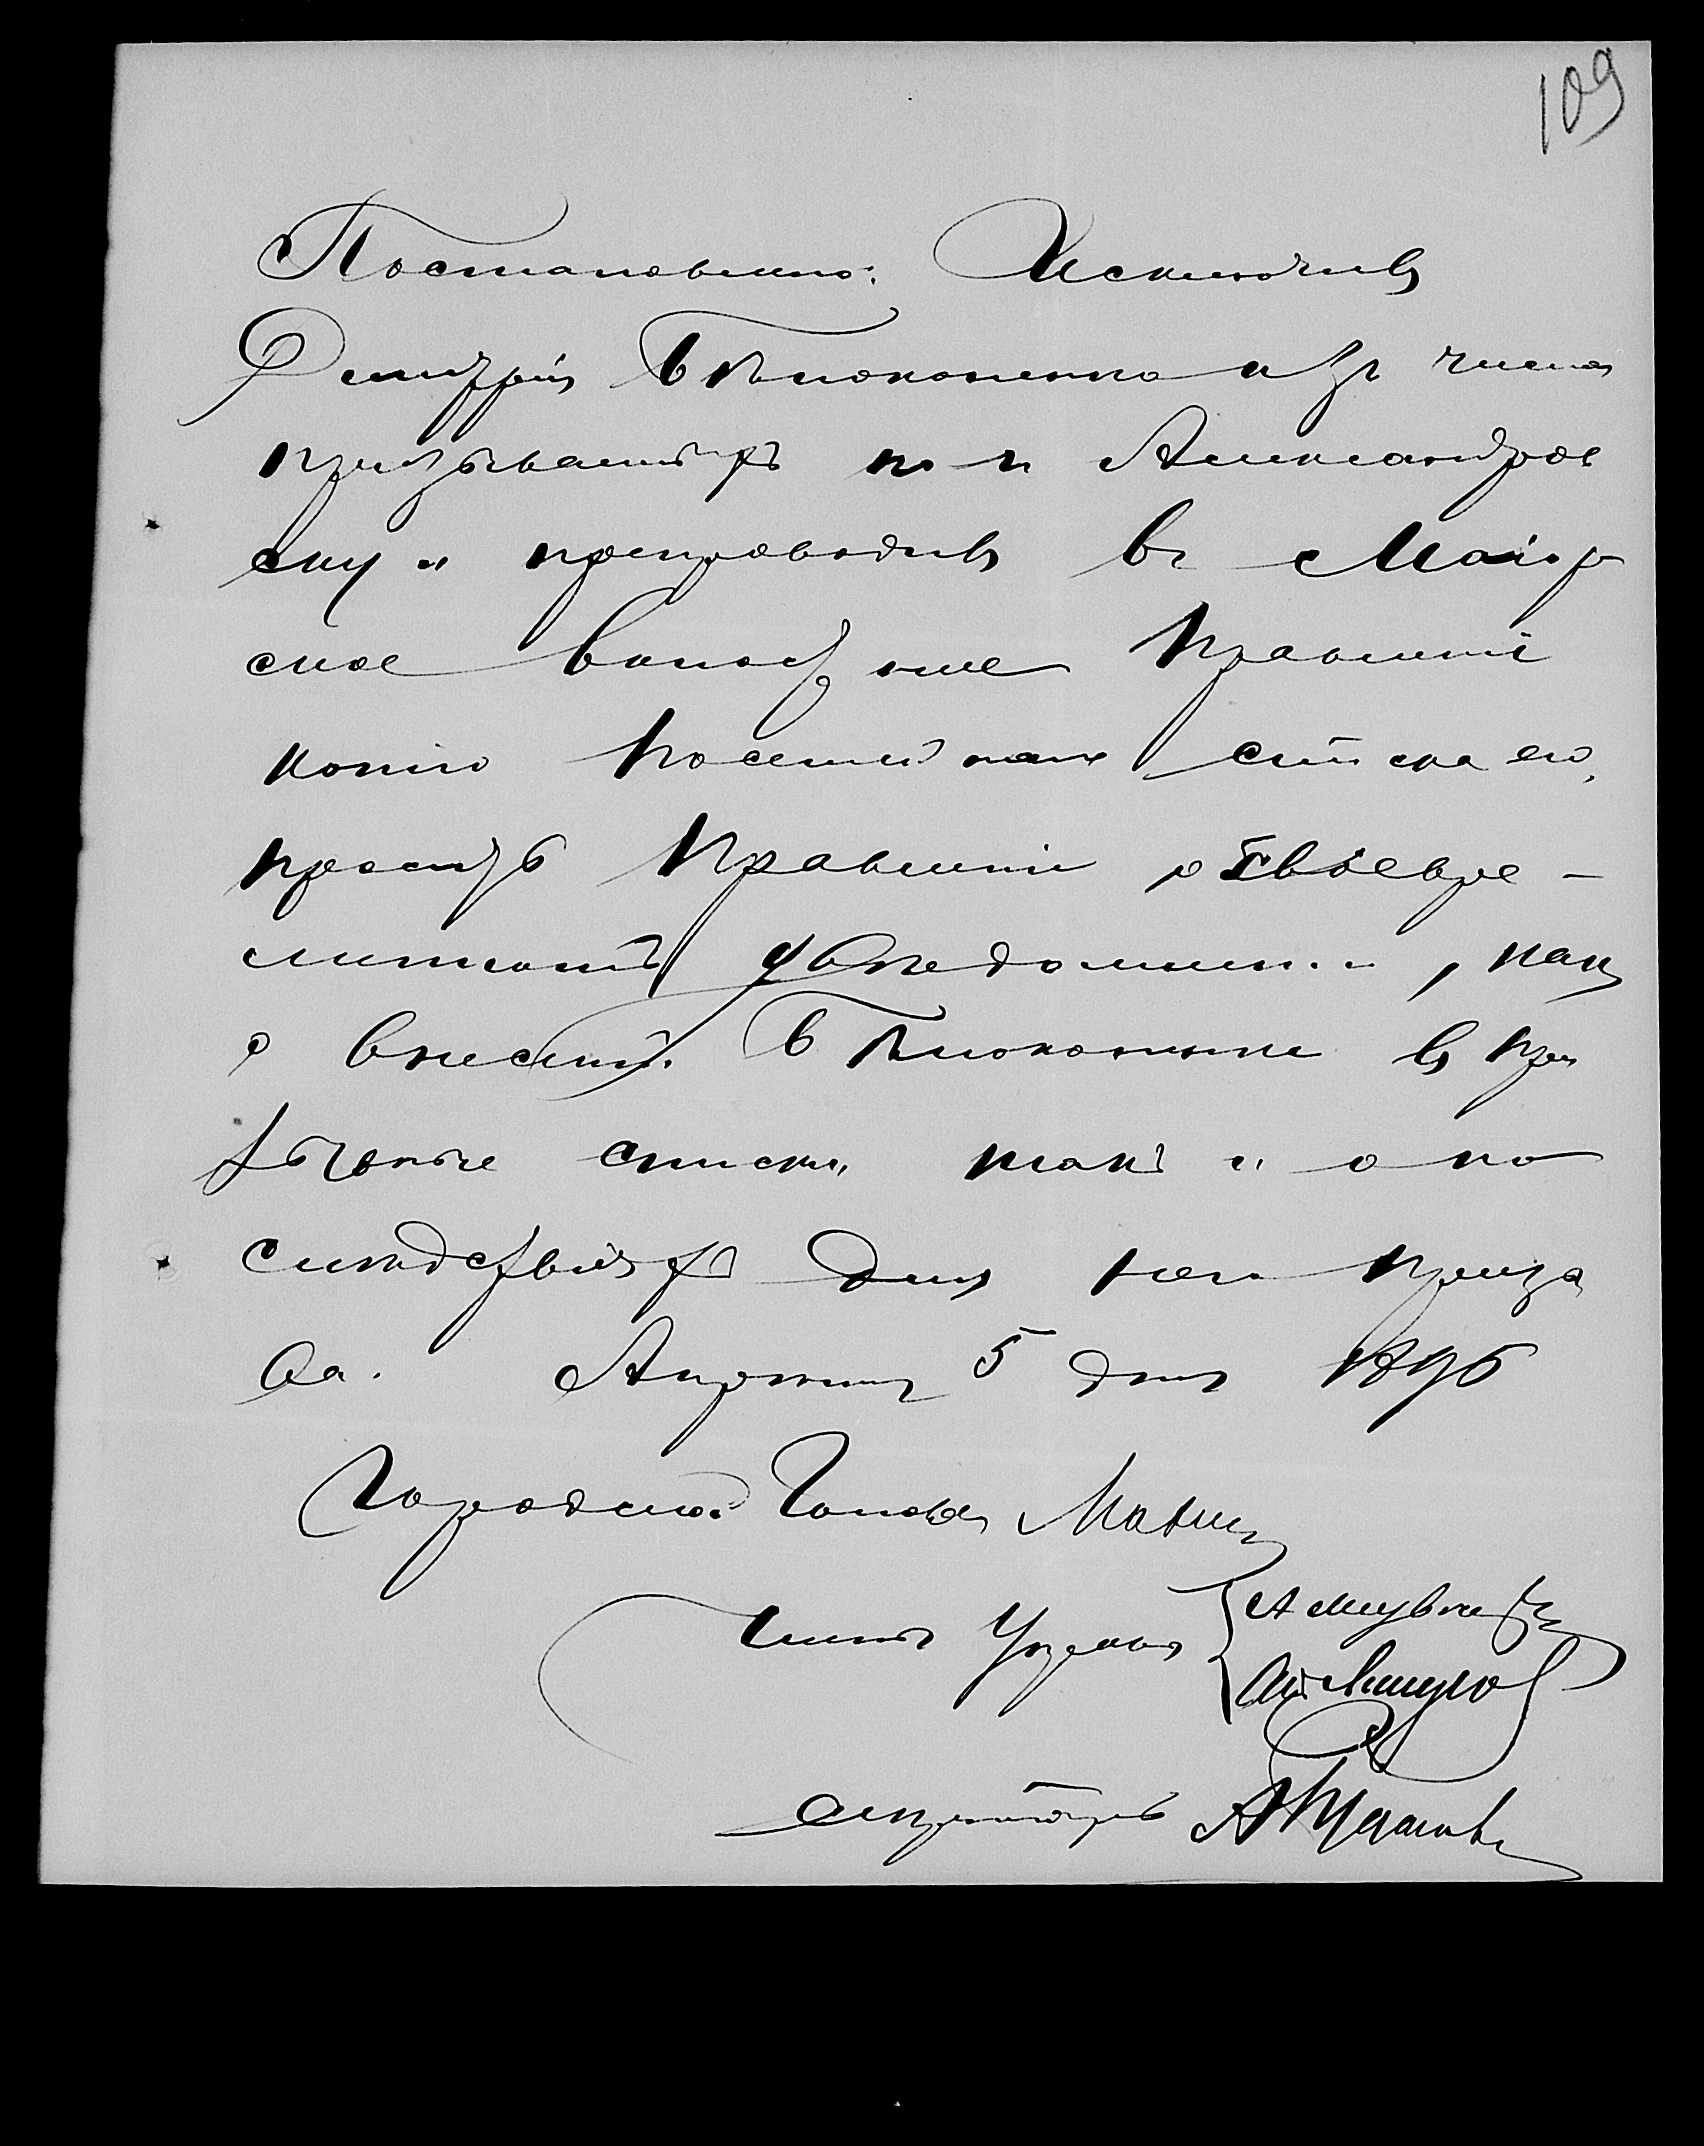 109
Постановлено: Исключивъ
Дмитрія Бѣлоконенко изъ числа
призываемыхъ по г. Александров
ску и препроводивъ въ Маіор
ское волостное Правленіе
копію посемейнаго списка его,
просить Правленіе о своевре-
менномъ увѣдомленіи, какъ
о внесеніи Бѣлоконенко въ при
зывные списки такъ и о по
слѣдствіяхъ для него призы
ва. Апрѣля 5 дня 1896
Городской Голова
Члены Управы
Секретарь